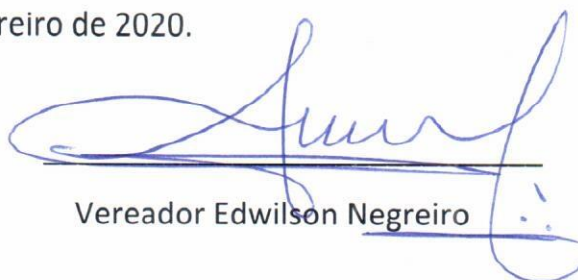 reiro de 2020.
Vereador Edwilson Negreiro